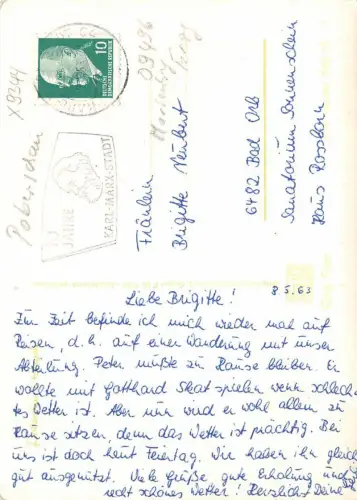 10
DEUTSCHE DEMOKRATISCHE REPUBLIK
X9344
09496
Marienberg
Pobershau
JAHRE
KARL-MARX-STADT
Fräulein
Brigitte Neubert
6482 Bad Orb
Sanatorium Sonnenschein
Haus Rossborn
8.5.63
Liebe Brigitte!
Zur Zeit befinde ich mich wieder mal auf
Reisen, d.h. auf einer Wanderung mit unser
Abteilung. Peter mußte zu Hause bleiben. Er
wollte mit Gotthard Skat spielen wenn schlech-
tes Wetter ist. Aber nun wird er wohl allein zu
Hause sitzen, denn das Wetter ist prächtig. Bei
uns ist doch heut Feiertag. Wir haben ihn gleich
gut ausgenützt. Viele Grüße, gute Erholung und
recht schönes Wetter! Herzlichst Deine